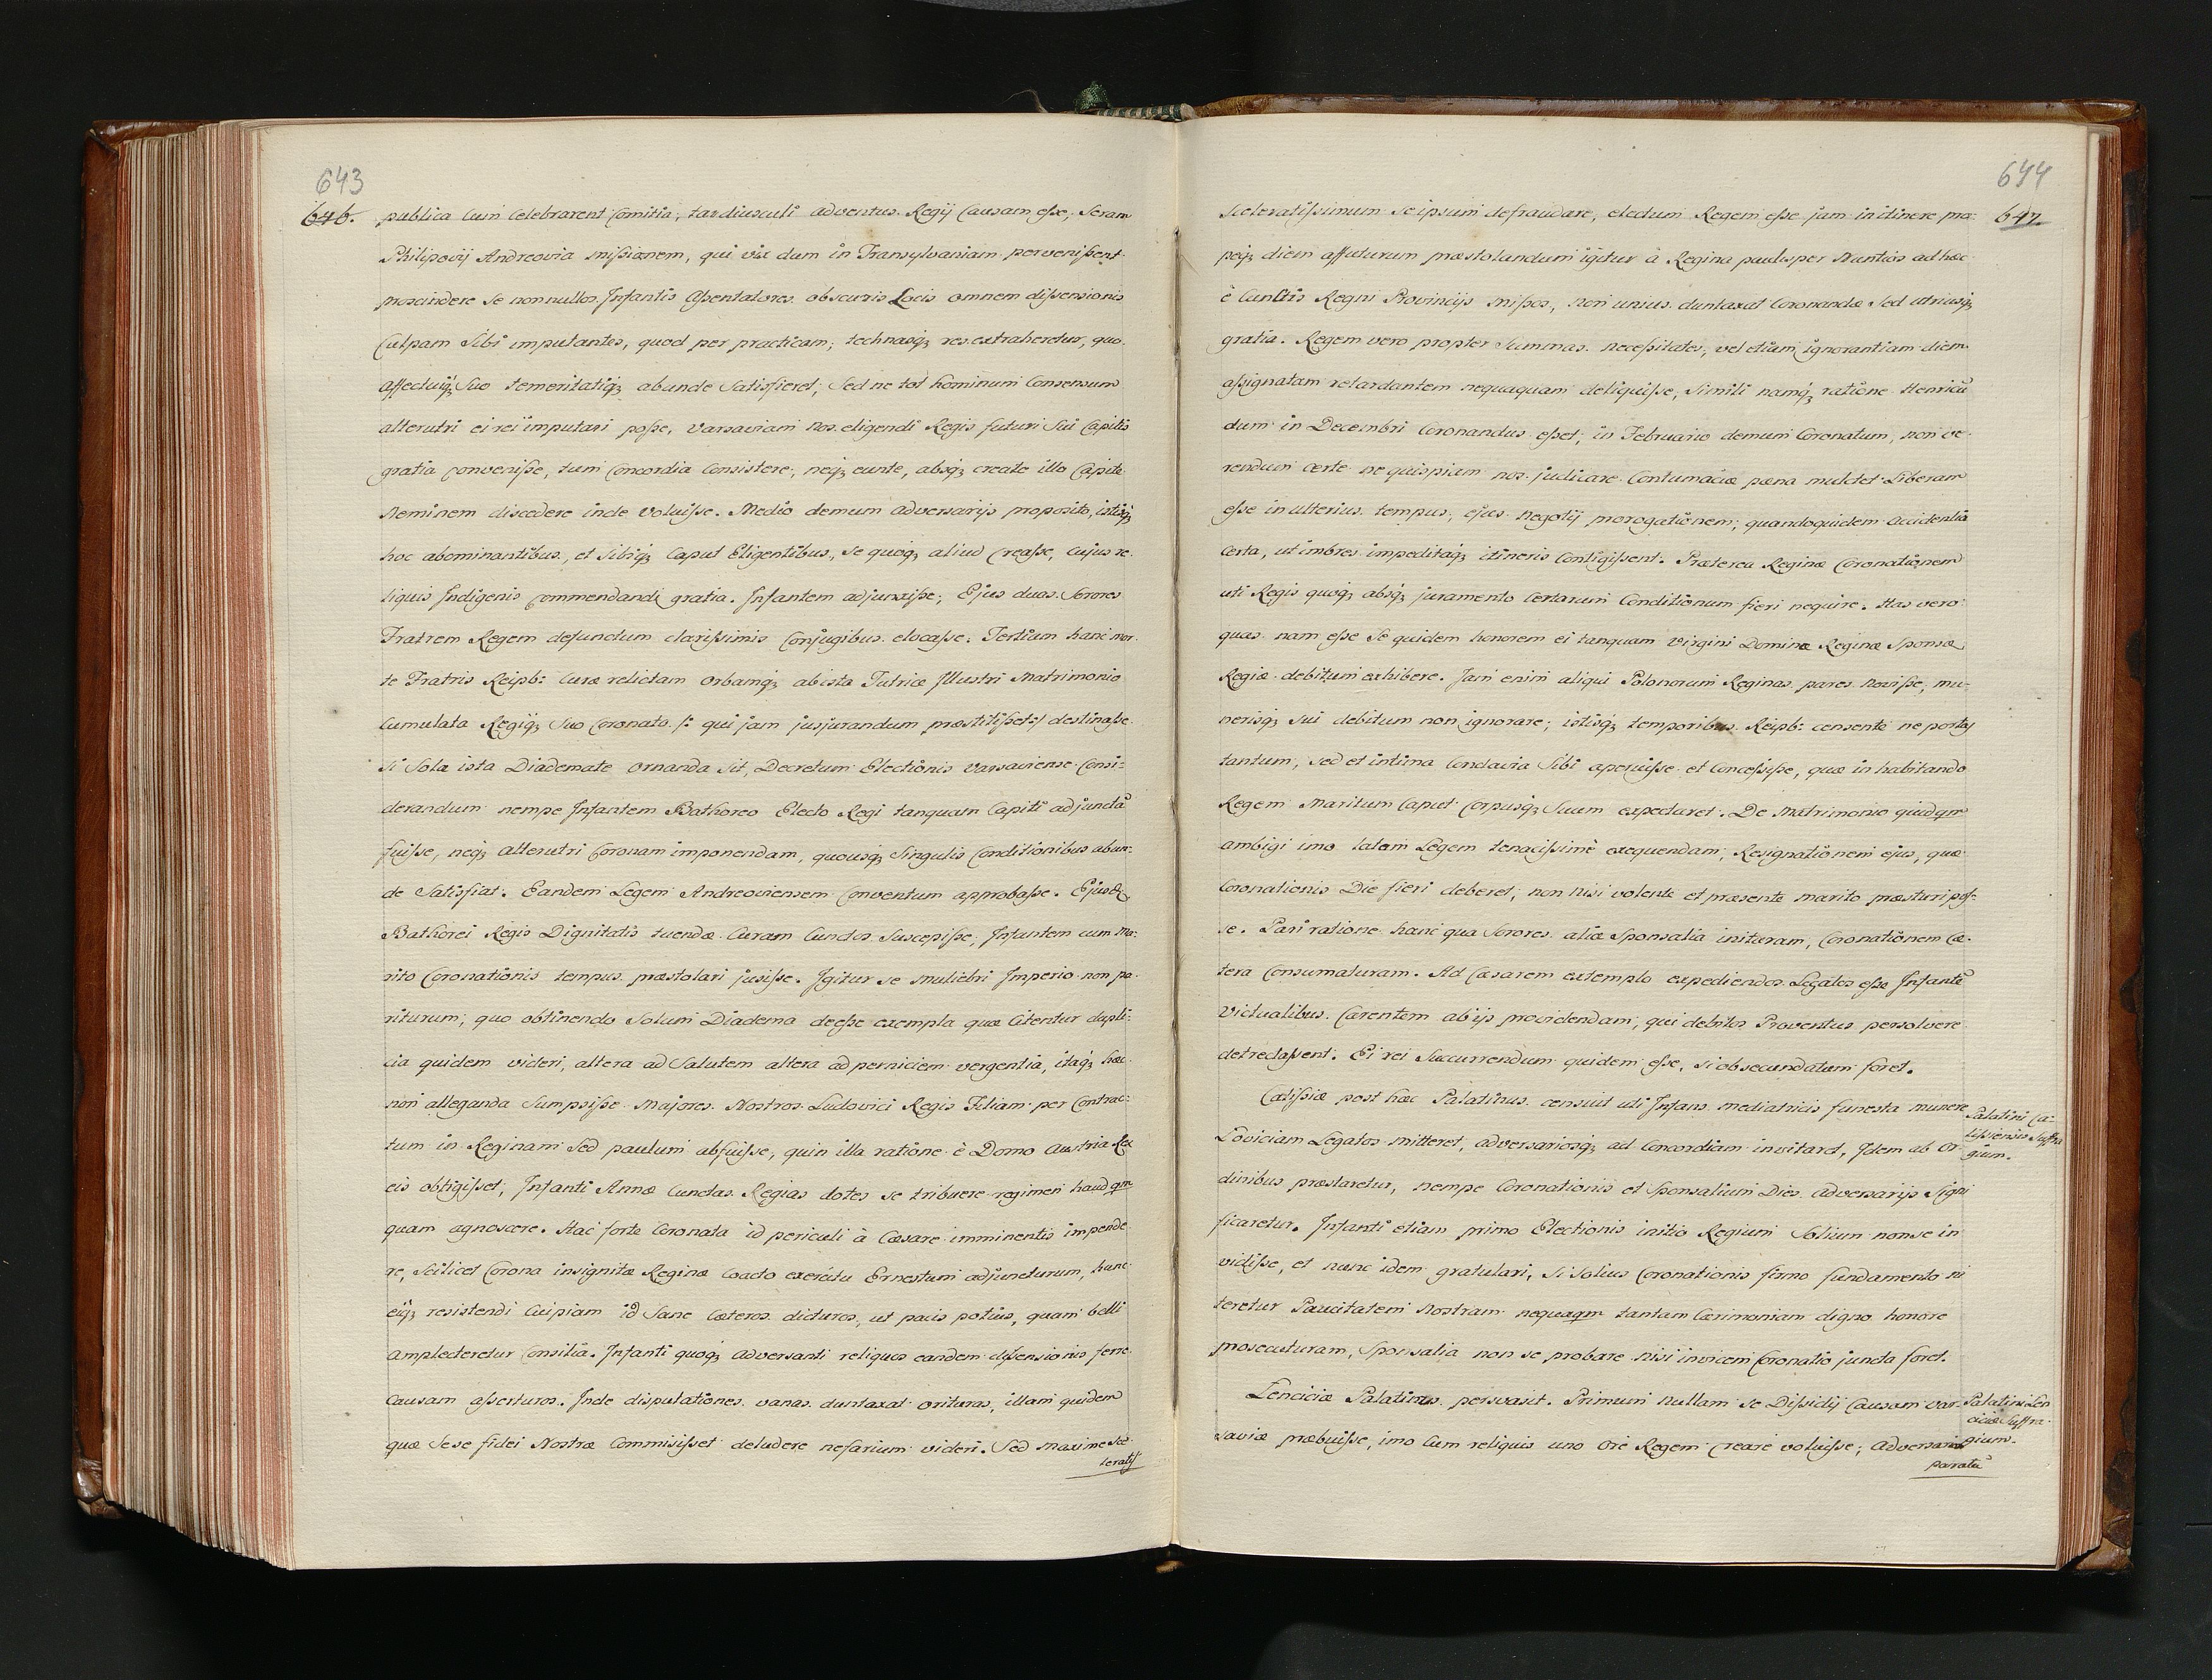 643
646. publica cum celebrarent Comitia, tardiusculi adventus Regij Causam esse, Seram
Philipovij Andreovia missionem, qui vix dum in Transylvaniam pervenissent.
proscindere se nonnullos Infantis assentatores obscuris Locis omnem dissensionis
Culpam Sibi imputantes, quod per practicam, technasq; res extraheretur, quo
affectuiq; Suo temeritatiq; abunde Satisfieret, Sed ne tot hominum Consensum
alterutri ei rei imputari posse, Varsaviam nos eligendi Regis futuri Sui Capitis
gratia convenisse, tum Concordia Consistere, neq; eunte, absq; creato illo Capite
Neminem discedere inde voluisse. Medio demum adversarijs proposito, istisq;
hoc abominantibus, et Sibiq; Caput Eligentibus, Se quoq; aliud Creasse, cujus re-
liquis Indigenis commendandi gratia. Infantem adjunxisse; Ejus duas Sorores
Fratrem Regem defunctum clarissimis Conjugibus elocasse; Tertium hanc mor-
te Fratris Reipb: Curæ relictam Orbamq; ab ista Tutrice Illustri Matrimonio
Cumulata Regiq; Suo Coronato /: qui jam jusjurandum præstitisset :/ destinasse
Si Sola ista Diademate Ornanda Sit, Decretum Electionis Varsaviense Consi-
derandum nempe Infantem Bathoreo Electo Regi tanquam Capiti adjunctã
fuisse, neq; alterutri Coronam imponendam, quousq; Singulis Conditionibus abun-
de Satisfiat. Eandem Legem Andreoviensem Conventum approbasse. Ejusdẽ
Bathorei Regis Dignitatis tuendæ Curam Cunctos Suscepisse, Infantem cum Ma-
rito Coronationis tempus præstolari jusisse. Igitur se Muliebri Imperio non pa-
riturum, quo obtinendo Solum Diadema deesse exempla quæ Citentur dupli-
cia quidem videri, altera ad Salutem altera ad perniciem vergentia, itaq; hæc
non alleganda Sumpsisse Majores Nostros Ludovici Regis Filiam per Contrac-
tum in Reginam Sed paulum abfuisse, quin illa ratione è Domo Austria Rex
eis obtigisset, Infanti Annæ Cunctas Regias dotes se tribuere regimen haud qm
quam agnoscere. Hac forte Coronata id periculi à Cæsare imminentis impende-
re, Scilicet Corona insignitæ Reginæ Coacto exercitu Ernestum adjuncturum, hunc
eiq; resistendi Cuipiam id Sane Cæteros dicturos, ut pacis potius, quam belli
amplecteretur Consilia. Infanti quoq; adversanti reliquos eandem dissensionis ferre
Causam asserturos. Inde disputationes vanas duntaxat orituras, illam quidem
quæ Sese fidei Nostræ Commisisset deludere nefarium videri. Sed maxime sce-
leratis
644
647.
sceleratissimum Seipsum defraudare, electum Regem esse jam in itinere pro-
peq; diem affuturum præstolandum igitur à Regina paulisper Nuntios ad hæc
è Cunctis Regni Provincijs missos, non unius duntaxat Coronandæ Sed utriusq;
gratia. Regem vero propter Summas necessitates, vel etiam ignorantiam diem
assignatam retardantem nequaquam deliquisse, Simili namq; ratione Henricũ
dum in Decembri Coronandus esset, in Februario demum Coronatum, non ve-
rendum certe ne quispiam nos judicare Contumaciæ pæna mulctet Liberam
esse in ulterius tempus, ejus Negotij prorogationem, quandoquidem accidentia
Certa, ut imbres impeditaq; itineris Contigissent. Præterea Reginæ Coronationem
uti Regis quoq; absq; juramento Certarum Conditionum fieri nequire. Has vero
quas nam esse Se quidem honorem ei tanquam Virgini Dominæ Reginæ Sponsæ
Regiæ debitum exhibere. Jam enim aliqui Polonorum Reginas pares Novisse, mu-
nerisq; sui debitum non ignorare; istisq; temporibus Reipb: censente ne portas
tantum, sed et intima Conclavia Sibi aperuisse et Concessisse, quæ inhabitando
Regem Maritum Caput Corpusq; Suum expectaret. De Matrimonio quidqm
ambigi imo talem Legem tenacissimè exequendam, Resignationem ejus, quæ
Coronationis Die fieri deberet, non nisi volente et præsente marito præsturi pos-
se. Pari ratione hanc qua Sorores aliæ Sponsalia initaram, Coronationem Cæ-
tera Consumaturam. Ad Cæsarem extemplo expediendos Legatos esse Infantẽ
Victualibus Carentem ab ijs providendam, qui debitos Proventus persolvere
detrectassent. Ei rei Succurrendum quidem esse, si obsecundatum foret.
Calissiæ post hæc Palatinus censuit uti Infans mediatricis funesta munere
Palatini Ca-
lissiensis Suffra
gium.
Loviciam Legatos mitteret, adversariosq; ad Concordiam invitaret, Idem ab Or-
dinibus præstaretur, nempe Coronationis et Sponsalium Dies adversarijs Signi
ficaretur. Infanti etiam primo Electionis initio Regium Solium non se in
vidisse, et nunc idem gratulari, Si Solius Coronationis firmo fundamento ni
teretur Paucitatem Nostram nequaqm tantam Cærimoniam digno honore
prosecuturam, Sponsalia non se probare nisi invicem Coronatio juncta foret.
Lenciciæ Palatinus persvasit. Primum Nullam Se Dissidij Causam Var-
Palatini Len
ciciæ Suffra-
gium.
saviæ præbuisse, imo Cum reliquis uno Ore Regem Creare voluisse; Adversarios
paratũ